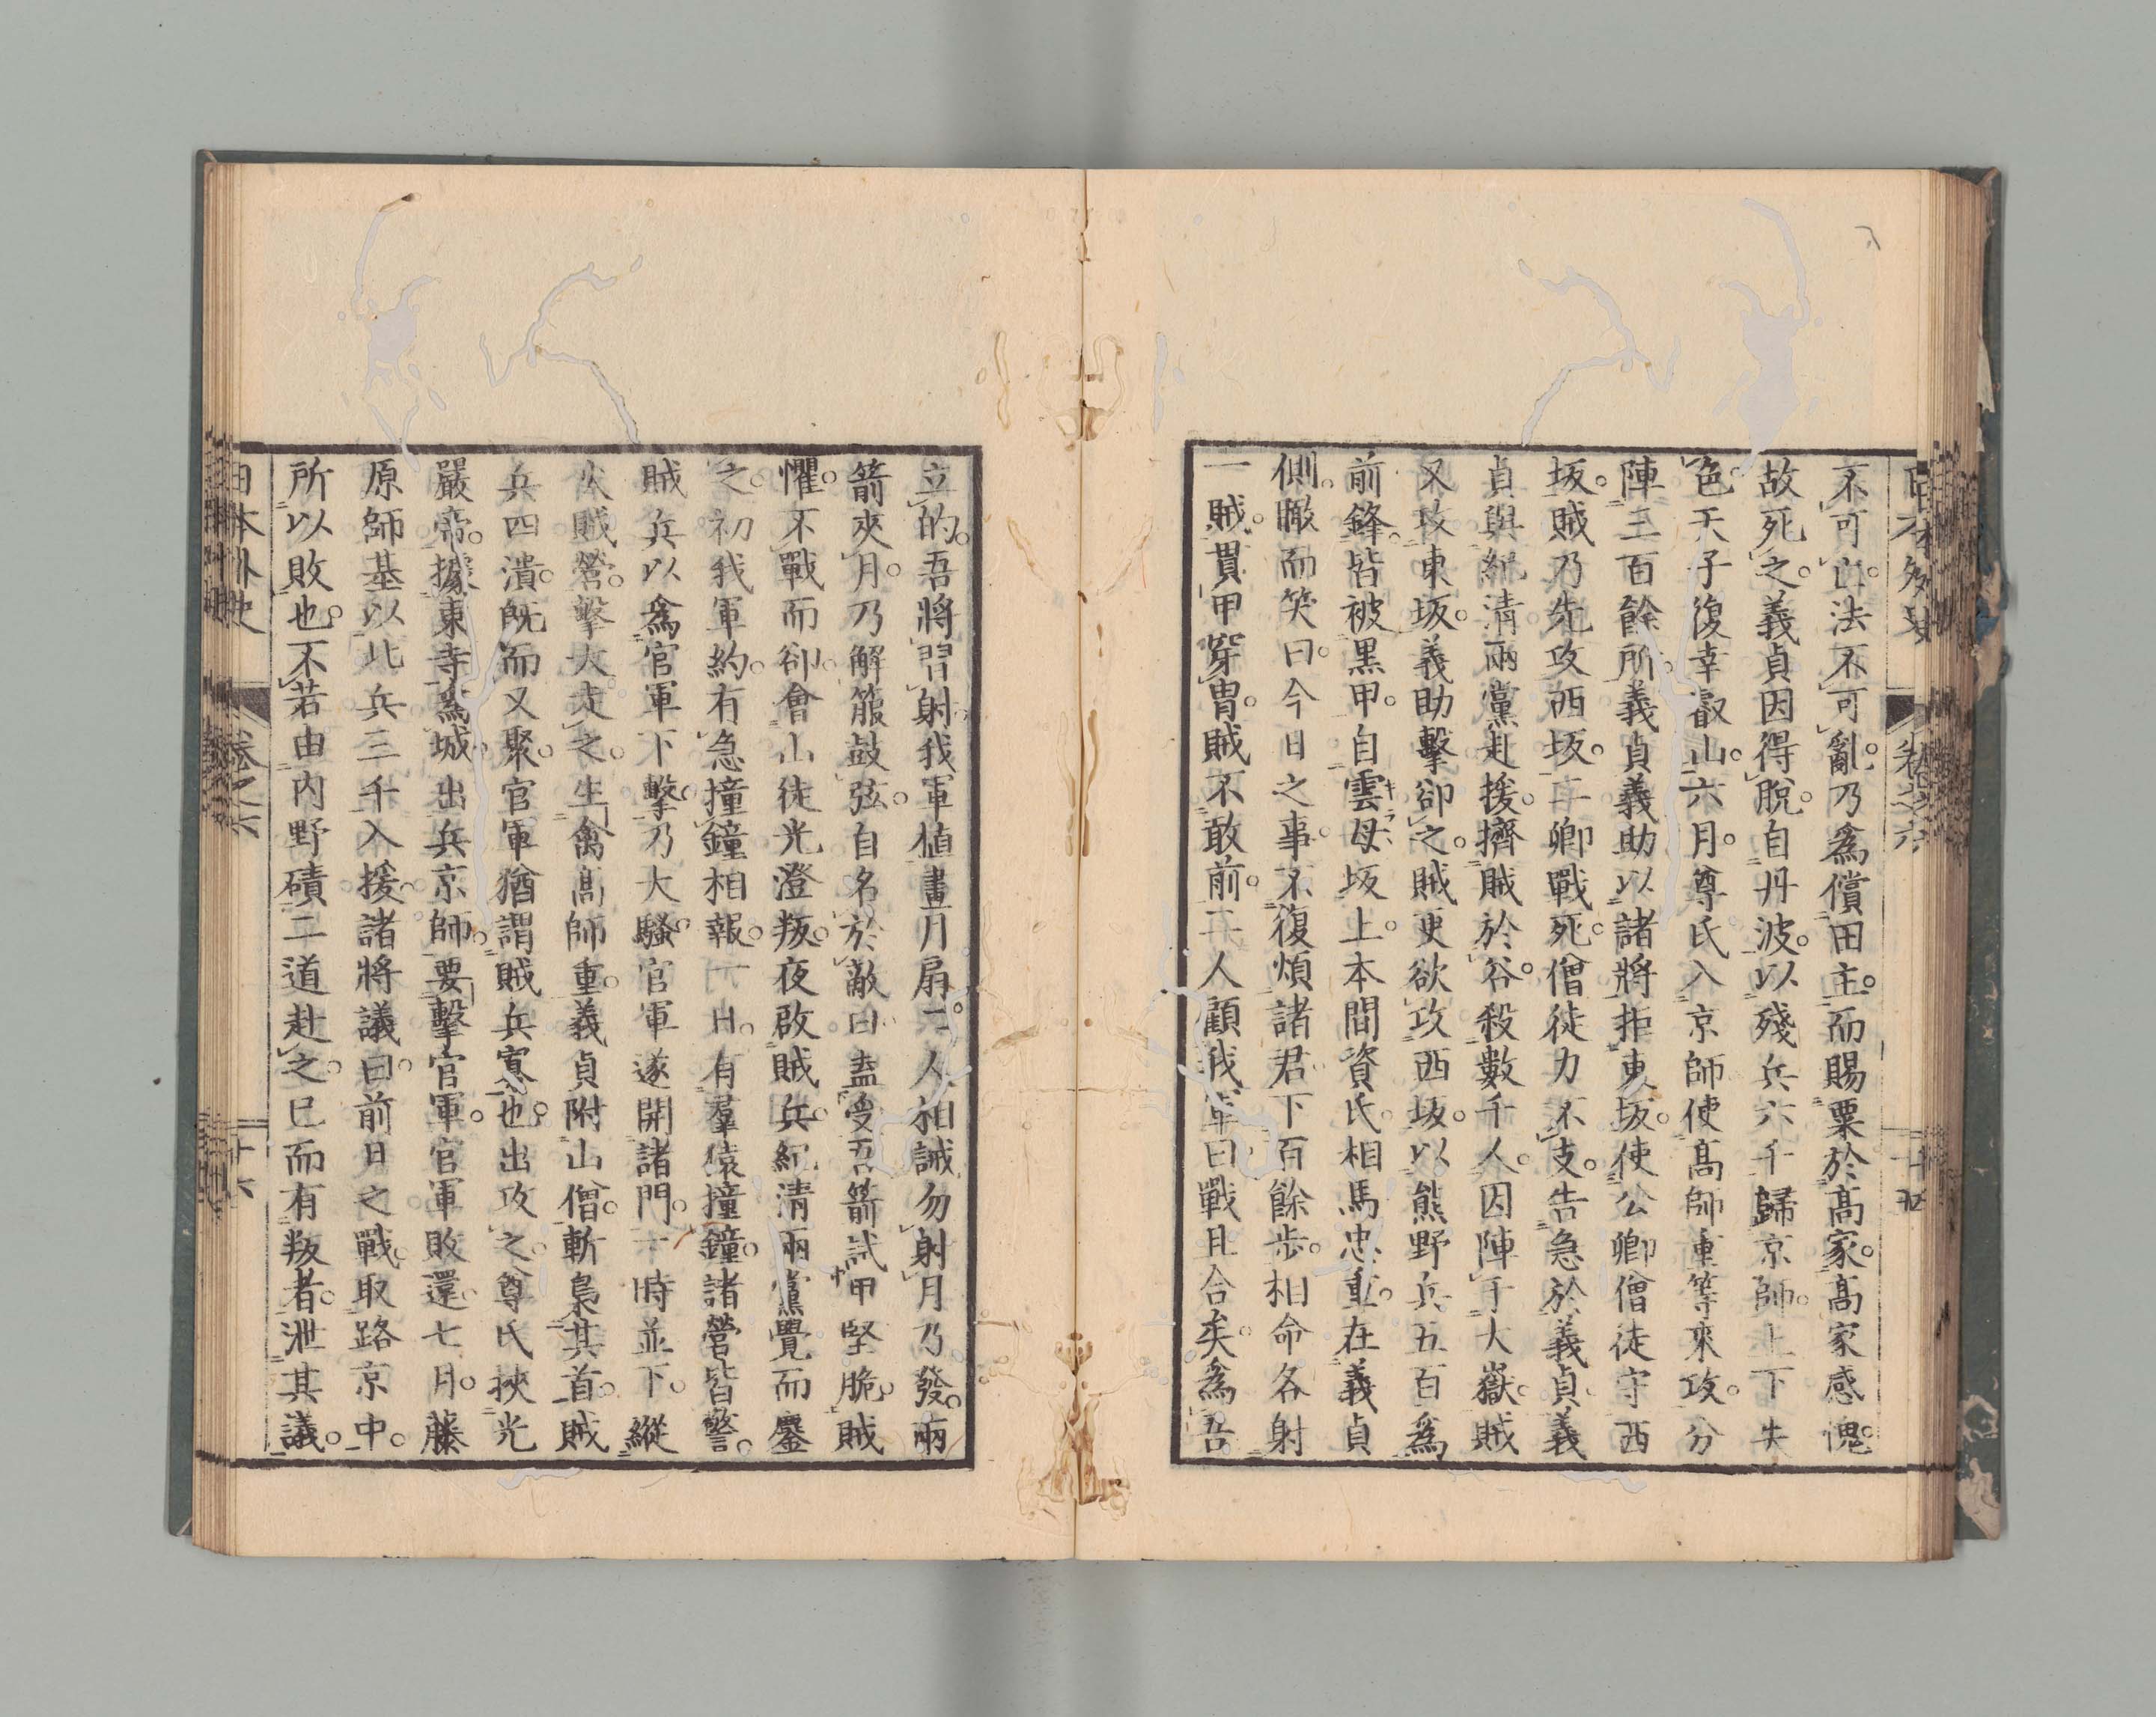 日本外史 卷之六 十五
不可。山法不可亂。乃爲償田主。而賜粟於高家。高家感愧。
故死之。義貞因得脫。自丹波。以殘兵六千歸京師。上下失
色。天子復幸叡山。六月。尊氏入京師。使高師重等來攻。分
陣三百餘所。義貞義助以諸將拒東坂。使公卿僧徒守西
坂。賊乃先攻西坂。二卿戰死。僧徒力不支。告急於義貞。義
貞與紀清兩黨赴援。擠賊於谷。殺數千人。因陣于大嶽。賊
又攻東坂。義助擊卻之。賊更欲攻西坂。以熊野兵五百爲
前鋒。皆被黑甲。自雲母坂上。本間資氏。相馬忠重。在義貞
側。瞰而笑曰。今日之事。不復煩諸君。下百餘步。相命各射
一賊。貫甲穿冑。賊不敢前。二人顧我軍曰。戰且合矣。爲吾
立的。吾將習射。我軍植畫月扇。二人相誡勿射月。乃發。兩
箭夾月。乃解箙鼓弦。自名於敵曰。盍受吾箭試甲堅脆。賊
懼。不戰而卻。會山徒光澄叛。夜啟賊兵。紀清兩黨覺而鏖
之。初我軍約。有急撞鐘相報。一日。有羣猿撞鐘。諸營皆警。
賊兵以爲官軍下擊。乃大騷。官軍遂開諸門。十時並下。縱
火賊營。擊大走之。生禽高師重。義貞附山僧。斬梟其首。賊
兵四潰。既而又聚。官軍猶謂賊兵寡也。出攻之。尊氏挾光
嚴帝。據東寺爲城。出兵京師。要擊官軍。官軍敗還。七月。藤
原師基以北兵三千入援。諸將議曰。前日之戰。取路京中。
所以敗也。不若由內野磧二道赴之。已而有叛者。泄其議。
日本外史 卷之六 十六